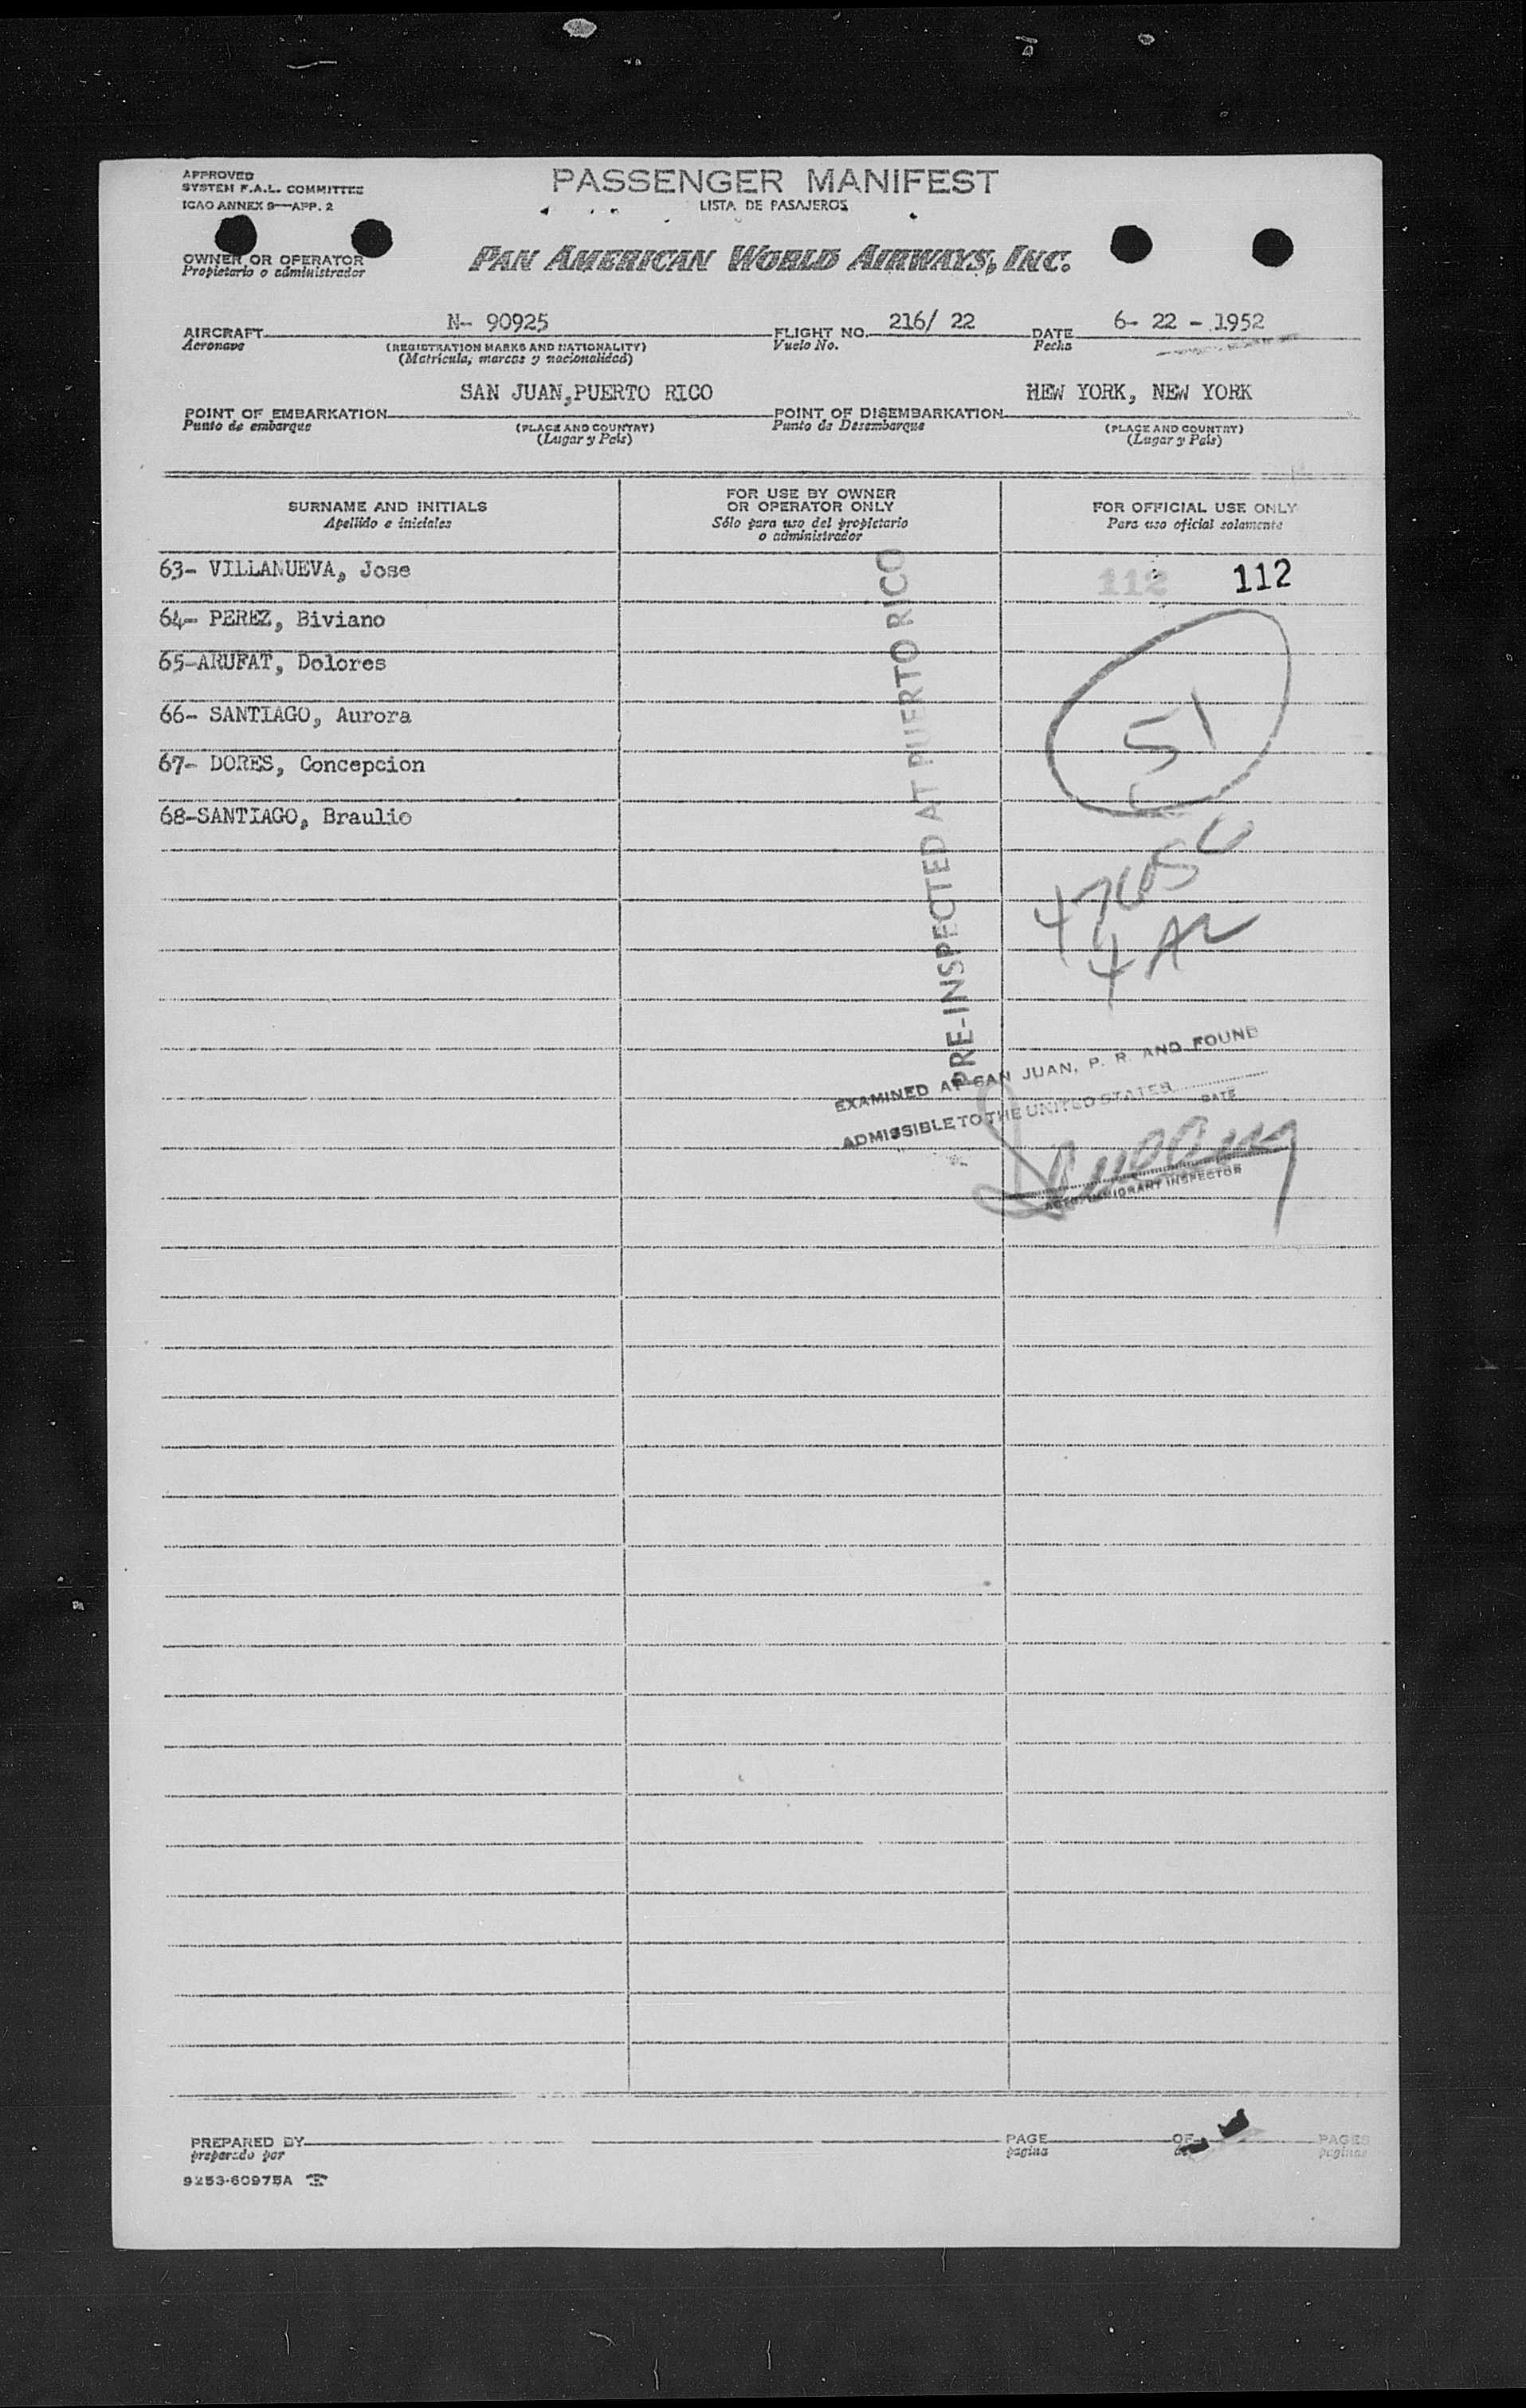 APPROVED
SYSTEM F.A.L. COMMITTEE
ICAO ANNEX 9—APP. 2
PASSENGER MANIFEST
LISTA DE PASAJEROS
OWNER OR OPERATOR
Propietario o administrador
PAN AMERICAN WORLD AIRWAYS, INC.
AIRCRAFT N- 90925 FLIGHT NO. 216/ 22 DATE 6- 22 - 1952
Aeronave (REGISTRATION MARKS AND NATIONALITY) Vuelo No. Fecha
(Matrícula, marcas y nacionalidad)
POINT OF EMBARKATION SAN JUAN,PUERTO RICO POINT OF DISEMBARKATION NEW YORK, NEW YORK
Punto de embarque (PLACE AND COUNTRY) Punto de Desembarque (PLACE AND COUNTRY)
(Lugar y País) (Lugar y País)
SURNAME AND INITIALS
Apellido e iniciales
FOR USE BY OWNER
OR OPERATOR ONLY
Sólo para uso del propietario
o administrador
FOR OFFICIAL USE ONLY
Para uso oficial solamente
63- VILLANUEVA, Jose
112 112
64- PEREZ, Biviano
65-ARUFAT, Dolores
66- SANTIAGO, Aurora
67- DORES, Concepcion
68-SANTIAGO, Braulio
PRE-INSPECTED AT PUERTO RICO
51
47 USC
4 AL
EXAMINED AT SAN JUAN, P. R. AND FOUND
ADMISSIBLE TO THE UNITED STATES
DATE
IMMIGRANT INSPECTOR
PREPARED BY PAGE OF PAGES
preparado por pagina de paginas
9253-60975A